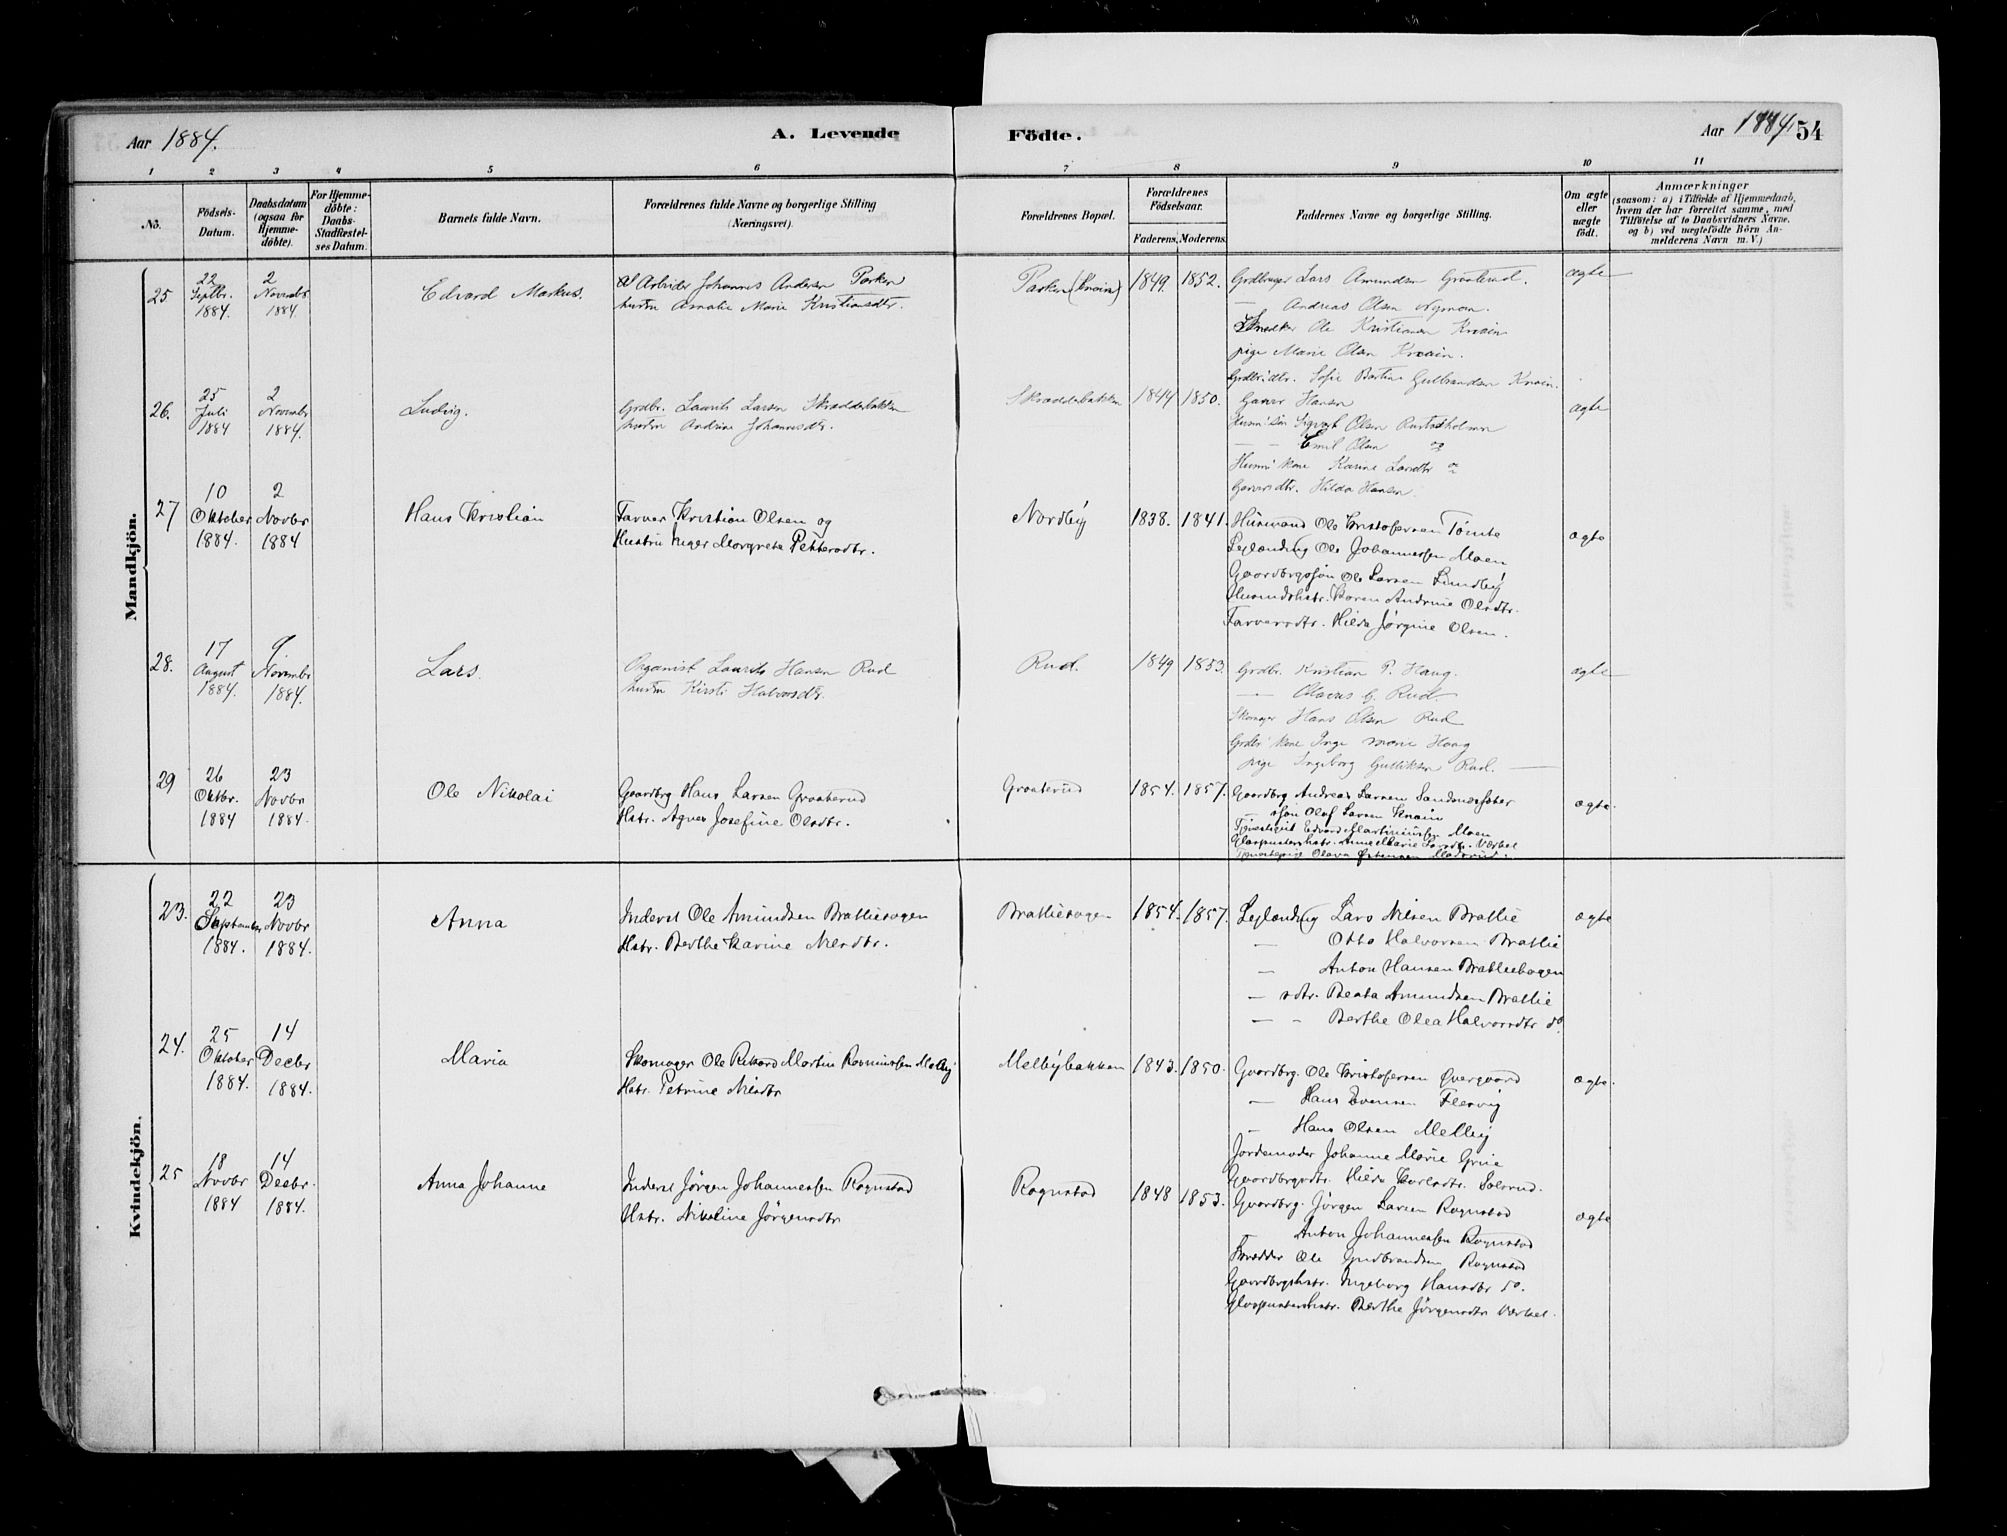 Aar 1884.
A. Levende Födte.
Aar 1884. 54
1 2 3 4 5 6 7 8 9 10 11
No.
Födsels-Datum.
Daabsdatum (ogsaa for Hjemmedöbte).
For Hjemmedöbte: Daabs-Stadfæstelses Datum.
Barnets fulde Navn.
Forældrenes fulde Navne og borgerlige Stilling (Næringsvei).
Forældrenes Bopæl.
Forældrenes Födselsaar.
Faderens. Moderens.
Faddernes Navne og borgerlige Stilling.
Om ægte eller uægte födt.
Anmærkninger
(saasom: a) i Tilfælde af Hjemmedaab, hvem der har forrettet samme, med Tilföielse af to Daabsvidners Navne, og b) ved uægtefödte Börn Anmelderens Navn m. V.)
Mandkjön.
25 22 Septbr. 1884. 2 Novembr 1884. Edvard Markus.
Arbeider Johannes Andersen Parken
hustru Amalie Marie Kristiansdtr.
Parken (Knain) 1849. 1852.
Grdbruger Lars Amundsen Graaterud. ægte
— Andreas Olsen Nyman.
Snedker Ole Kristiansen Knain
pige Marie Olsen Knain.
Grdbrsdtr. Sofie Bertine Gulbrandsen Knain.
26. 25 Juli 1884 2 Novembr 1884. Ludvig.
Grdbr. Laurits Larsen Skrædderbakken
hustru Andrine Johannesdtr.
Skrædderbakken 1844 1850.
Garver Hansen ægte
Husm. søn Sigvart Olsen
— — Emil Olsen
Husm. kone Karine Larsdtr
Garversdtr. Hilda Hansen.
27 10 Oktober 1884. 2 Novbr 1884 Hans Kristian
Farver Kristian Olsen og
Hustru Inger Margrete Pettersdtr.
Nordby 1838. 1841.
Husmand Ole Kristofersen Tømte ægte
Leilænding Ole Johannessen Moen
Gaardbrgsøn Ole Larsen Lundby
Husmdshstr. Karen Andrine Olsdtr.
Farversdtr. Hilda Jørgine Olsen.
28. 17 August 1884. 9 November 1884. Lars.
Organist Laurits Hansen Rud
hustru Kirsti Halvorsdtr.
Rud. 1849 1853.
Grdbr. Kristian P. Haug. ægte
— Olaves G. Rud.
Skomager Hans Olsen Rud
Grdbr. kone Inge Marie Haug
pige Ingeborg Gulliksen Rud.
29 26 Oktbr. 1884 23 Novbr 1884. Ole Nikolai
Gaardbrg Hans Larsen Graaterud
Hstr. Agnes Josefine Olsdtr.
Graaterud 1854. 1857.
Gaardbrg Andreas Larsen ægte
— søn Olaf Larsen Knain
Tjenestegut Edvard Martiniussen Moen
Glaspusterhstr. Anne Marie Larsdtr. Værket
Tjenestepige Olava
Kvindekjön.
23. 22 September 1884. 23 Novbr 1884. Anna
Inderst Ole Amundsen Bratliehagen
Hstr. Berthe Karine Nilsdtr.
Bratliehagen 1854. 1857.
Leilænding Lars Nilsen Bratlie ægte
— Otto Halvorsen Bratlie
— Anton Hansen Bratliehagen
— sdtr. Beata Amundsen Bratlie
— — Berthe Olea Halvorsdtr do.
24. 25 Oktober 1884. 14 Decbr 1884. Maria
Skomager Ole Rikard Martin Rasmussen Melby
Hstr. Petrine Nilsdtr
Melbybakken 1843. 1850.
Gaardbrg. Ole Kristofersen Øvergaard ægte.
— Hans Evensen Flesvig
— Hans Olsen Melby
Jordemoder Johanne Marie Grine
Gaardbrgsdtr. Hilda Karlsdtr. Solerud.
25 18 Novbr 1884 14 Decbr. 1884. Anna Johanne
Inderst Jørgen Johannessen Rognstad
Hstr. Nikoline Jørgensdtr
Rognstad 1848 1853.
Gaardbrg. Jørgen Larsen Rognstad ægte
Anton Johannessen Rognstad
Skrædder Ole Gudbrandsen Rognstad
Gaardbrgshstr. Ingeborg Hansdtr do.
Glaspusterhstr. Berthe Jørgensdtr Værket.